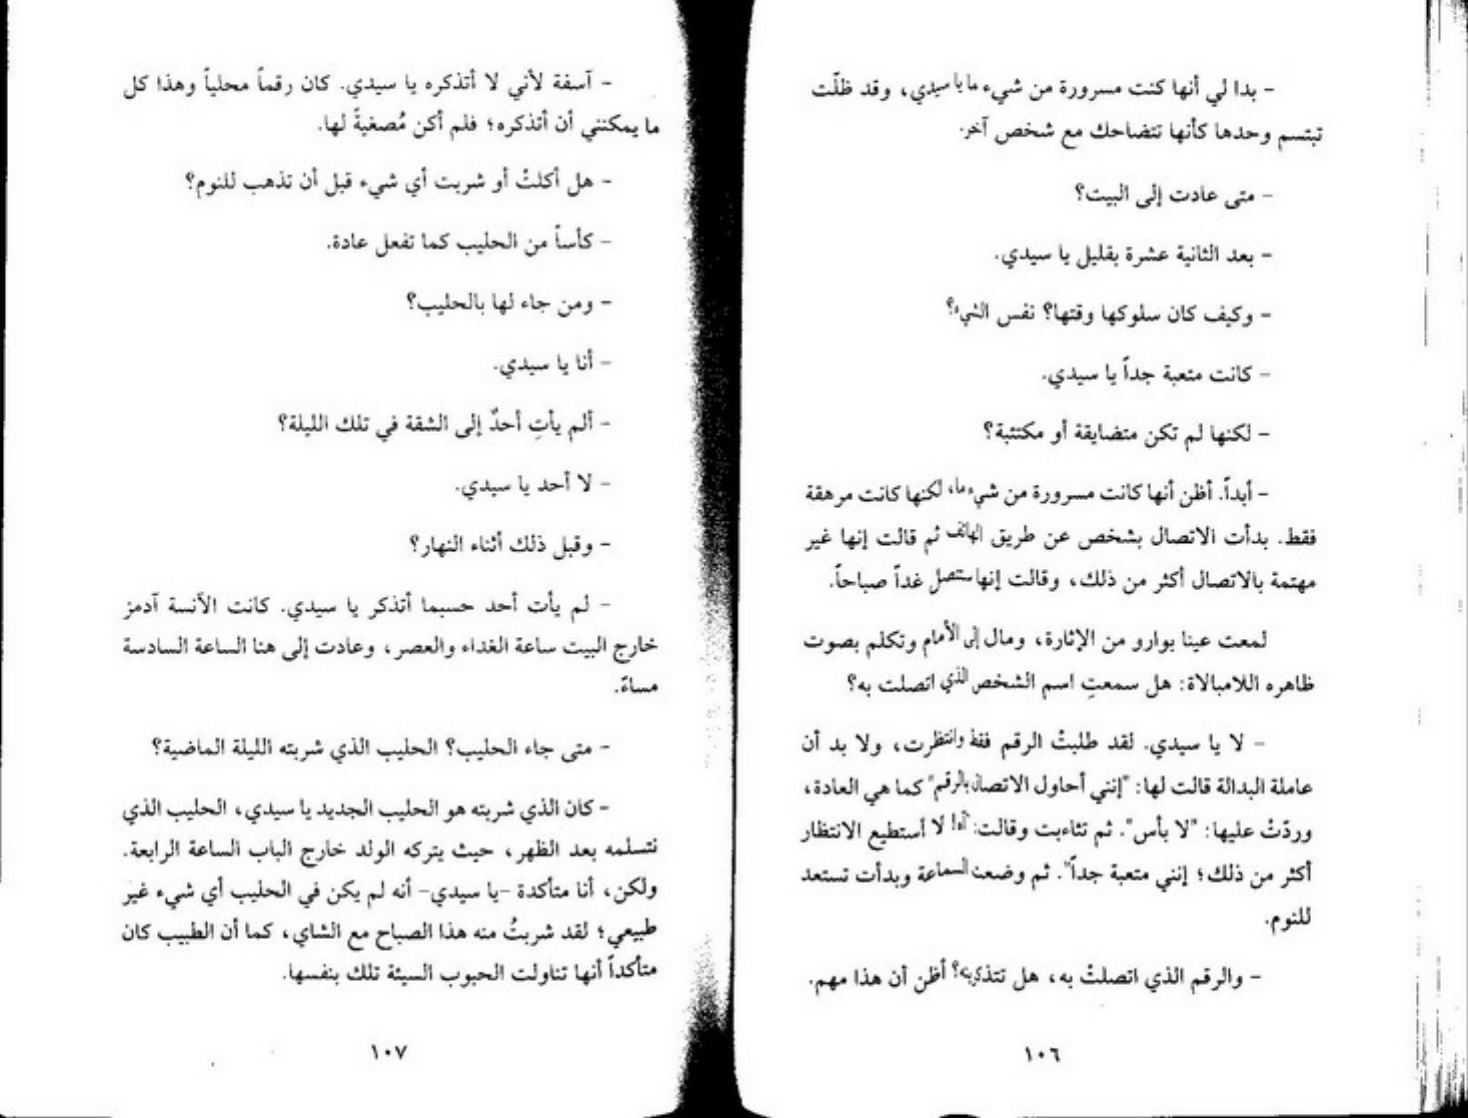 - بدا لي أنها كنت مسرورة من شيء ما يا سيدي، وقد ظلّت
تبتسم وحدها كأنها تتضاحك مع شخص آخر.
- متى عادت إلى البيت؟
- بعد الثانية عشرة بقليل يا سيدي.
- وكيف كان سلوكها وقتها؟ نفس الشيء؟
- كانت متعبة جداً يا سيدي.
- لكنها لم تكن متضايقة أو مكتئبة؟
- أبداً. أظن أنها كانت مسرورة من شيء ما، لكنها كانت مرهقة
فقط. بدأت الاتصال بشخص عن طريق الهاتف ثم قالت إنها غير
مهتمة بالاتصال أكثر من ذلك، وقالت إنها ستتصل غداً صباحاً.
لمعت عينا بوارو من الإثارة، ومال إلى الأمام وتكلم بصوت
ظاهره اللامبالاة: هل سمعتِ اسم الشخص الذي اتصلت به؟
- لا يا سيدي. لقد طلبتْ الرقم فقط وانتظرت، ولا بد أن
عاملة البدالة قالت لها: "إنني أحاول الاتصال بالرقم" كما هي العادة،
وردّتْ عليها: "لا بأس". ثم تثاءبت وقالت: "آه! لا أستطيع الانتظار
أكثر من ذلك؛ إنني متعبة جداً". ثم وضعت السماعة وبدأت تستعد
للنوم.
- والرقم الذي اتصلتْ به، هل تتذكرينه؟ أظن أن هذا مهم.
١٠٦
- آسفة لأني لا أتذكره يا سيدي. كان رقماً محلياً وهذا كل
ما يمكنني أن أتذكره؛ فلم أكن مُصغيةً لها.
- هل أكلتْ أو شربت أي شيء قبل أن تذهب للنوم؟
- كأساً من الحليب كما تفعل عادة.
- ومن جاء لها بالحليب؟
- أنا يا سيدي.
- ألم يأتِ أحدٌ إلى الشقة في تلك الليلة؟
- لا أحد يا سيدي.
- وقبل ذلك أثناء النهار؟
- لم يأت أحد حسبما أتذكر يا سيدي. كانت الآنسة آدمز
خارج البيت ساعة الغداء والعصر، وعادت إلى هنا الساعة السادسة
مساءً.
- متى جاء الحليب؟ الحليب الذي شربته الليلة الماضية؟
- كان الذي شربته هو الحليب الجديد يا سيدي، الحليب الذي
نتسلمه بعد الظهر، حيث يتركه الولد خارج الباب الساعة الرابعة.
ولكن، أنا متأكدة -يا سيدي- أنه لم يكن في الحليب أي شيء غير
طبيعي؛ لقد شربتُ منه هذا الصباح مع الشاي، كما أن الطبيب كان
متأكداً أنها تناولت الحبوب السيئة تلك بنفسها.
١٠٧